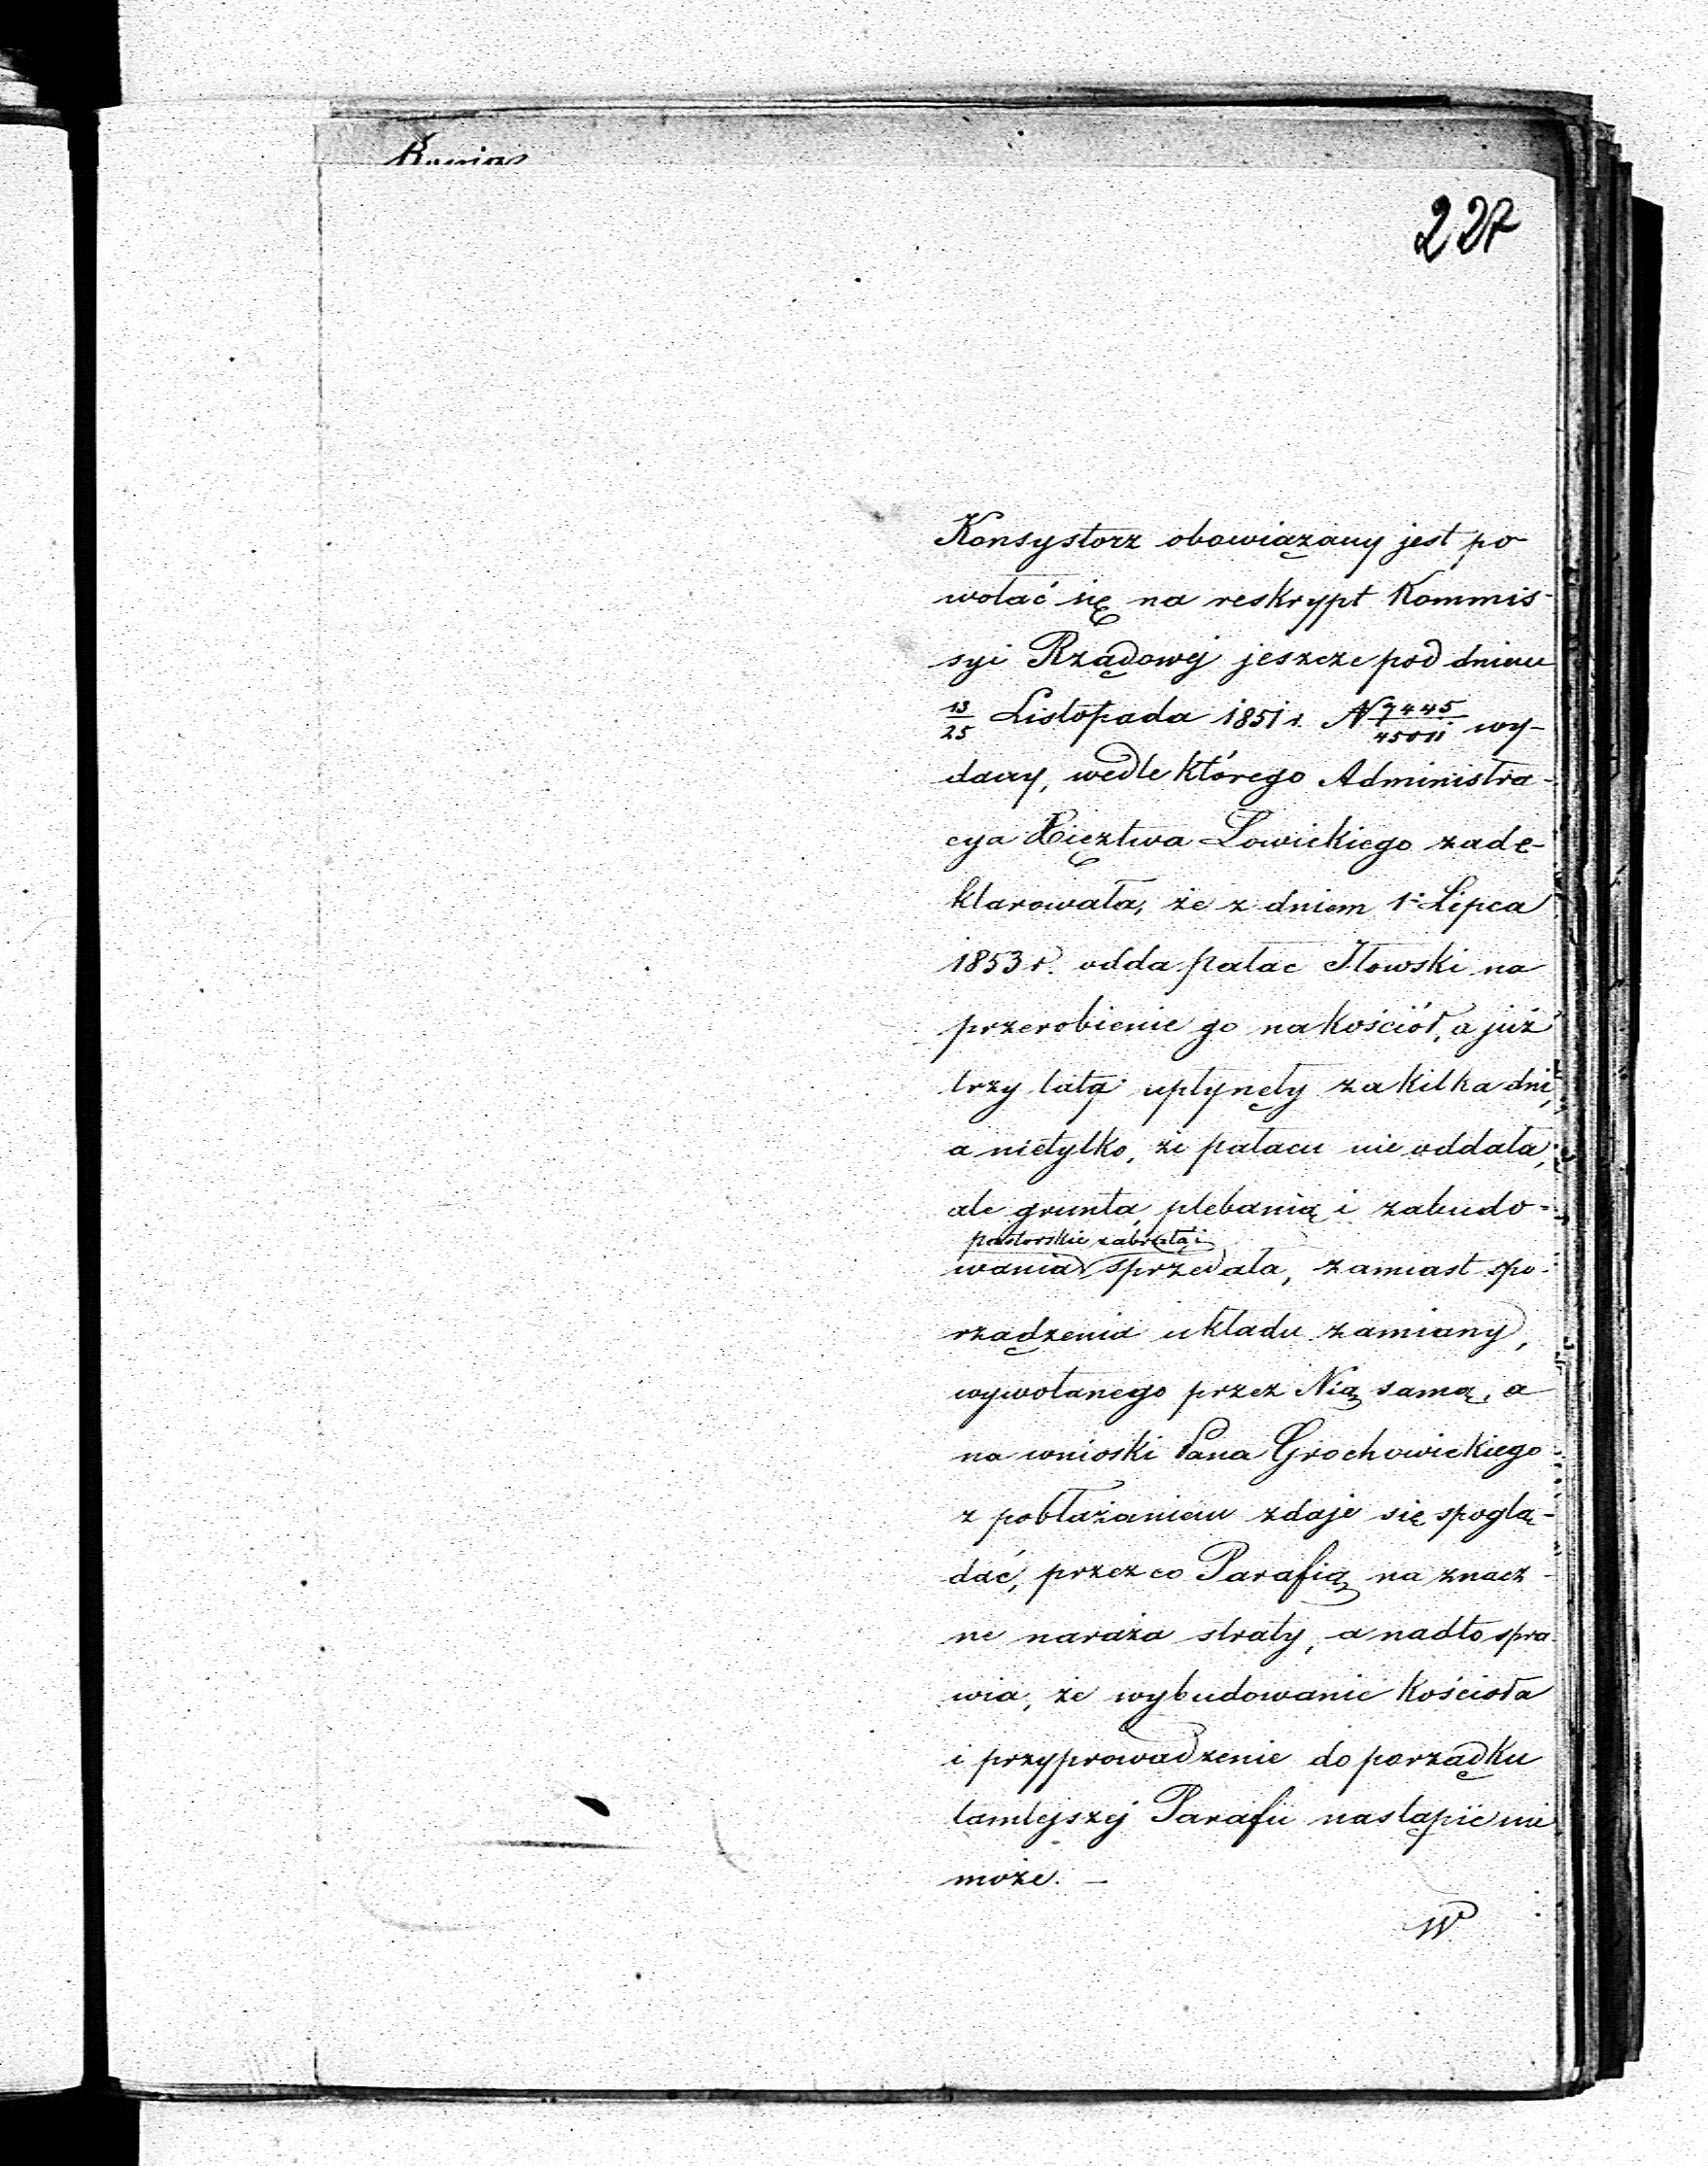 227
Konsystorz obowiązany jest po-
wołać się na reskrypt Kommis-
syi Rządowéj jeszcze pod dniem
13/25 Listopada 1851 r. N 7445/45011 wy-
dany, wedle którego Administra-
cya Xięztwa Łowickiego zade-
klarowała, że z dniem 1º Lipca
1853 r. odda pałac Iłowski na
przerobienie go na kościół, a już
trzy lata upłynęły za kilka dni,
a nietylko, że pałacu nie oddała,
ale grunta, plebanią i zabudo-
pastorskie zabrała i
wania sprzedała, zamiast spo-
rządzenia układu zamiany,
wywołanego przez Nią samą, a
na wnioski Pana Grochowickiego
z pobłażaniem zdaje się spoglą-
dać, przez co Parafią na znacz-
ne naraża straty, a nadto spra-
wia, że wybudowanie kościoła
i przyprowadzenie do porządku
tamtejszéj Parafii nastąpić nie
może. —
W